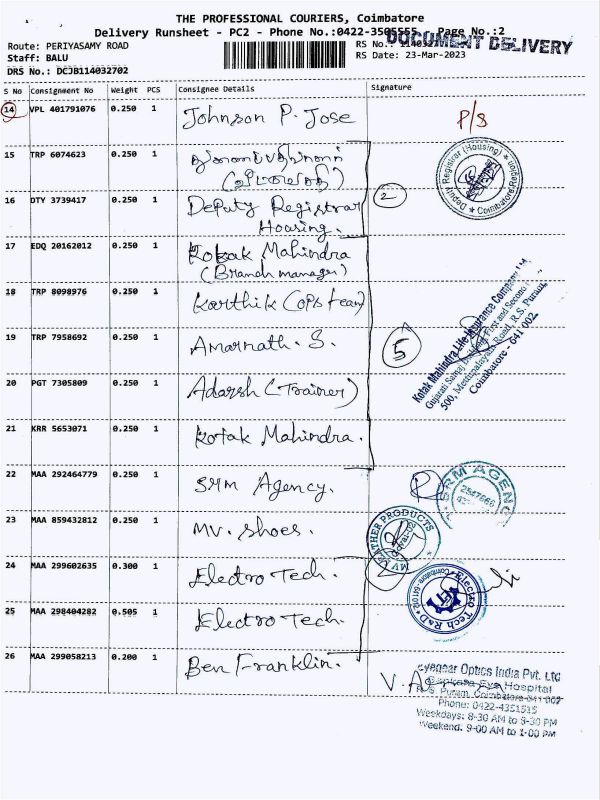 THE PROFESSIONAL COURIERS, Coimbatore
Delivery Runsheet - PC2 - Phone No.:0422-3505555 Page No.:2
DOCUMENT DELIVERY
Route: PERIYASAMY ROAD
Staff: BALU
DRS No.: DCJB114032702
RS No.:
RS Date: 23-Mar-2023
S No Consignment No Weight PCS Consignee Details Signature
14 VPL 401791076 0.250 1 Johnson P. Jose P/S
15 TRP 6074623 0.250 1
Deputy Registrar (Housing)
Coimbatore Region
16 DTY 3739417 0.250 1 Deputy Registrar 2
Housing.
17 EDQ 20162012 0.250 1 Kotak Mahindra
(Branch manager)
18 TRP 8098976 0.250 1 Karthik (ops team)
19 TRP 7958692 0.250 1 Amarnath. S. 5
Kotak Mahindra Life Insurance Company Ltd.
Gujarati Samaj Building First and Second
500, Mettupalayam Road, R.S. Puram,
Coimbatore - 641 002
20 PGT 7305809 0.250 1 Adarsh (Trainer)
21 KRR 5653071 0.250 1 Kotak Mahindra.
22 MAA 292464779 0.250 1 SRM Agency.
SRM AGENC
2547666
23 MAA 859432812 0.250 1 MV. Shoes.
MV LEATHER PRODUCTS
24 MAA 299602635 0.300 1 Electro Tech. 2
Electro Tech R&D
25 MAA 298404282 0.505 1 Electro Tech.
26 MAA 299058213 0.200 1 Ben Franklin.
Optics India Pvt. Ltd
Sankara Eye Hospital
R.S. Puram, Coimbatore-641 002
Phone: 0422-4351515
Weekdays: 8-30 AM to 8-30 PM
Weekend: 9-00 AM to 1-00 PM